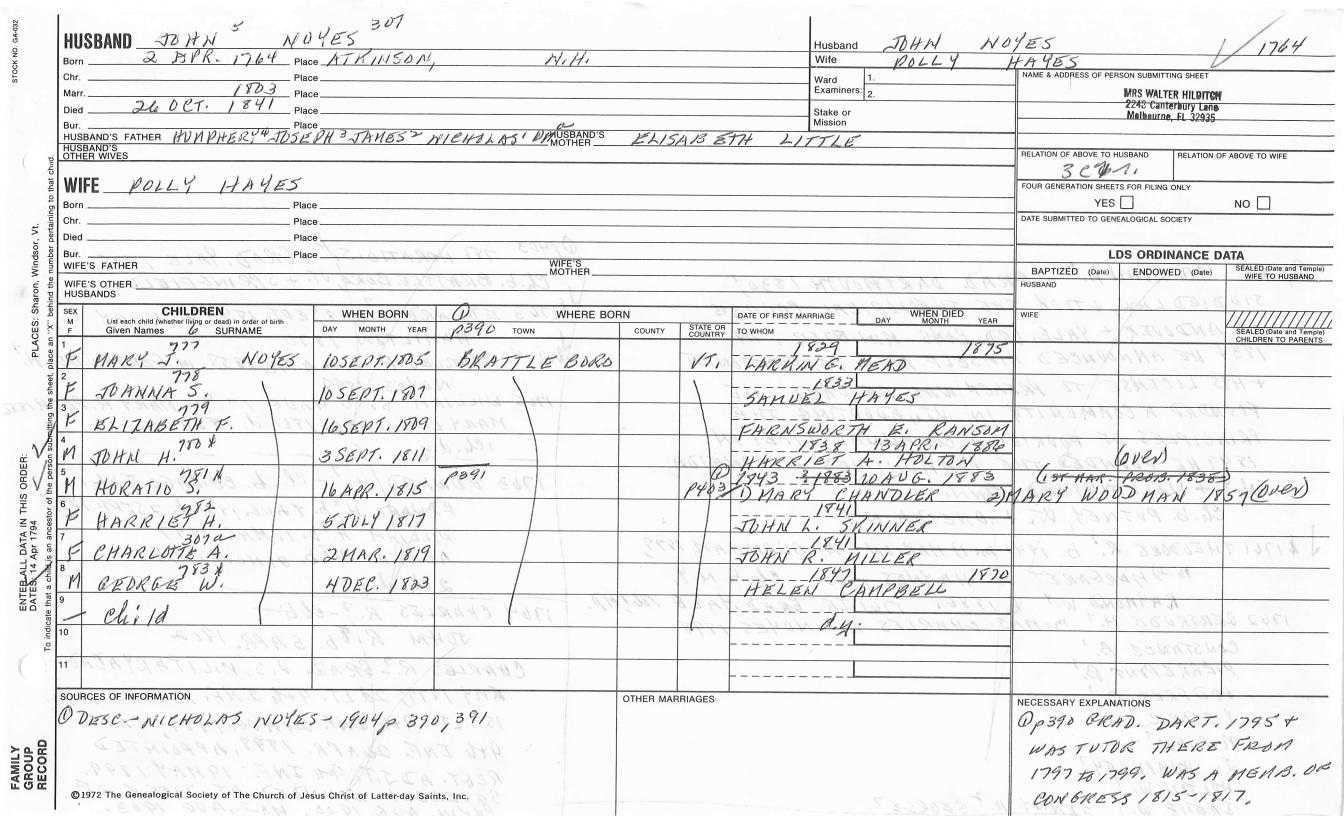 STOCK NO. GA-032
HUSBAND JOHN 5 NOYES 307
Born 2 APR. 1764 Place ATKINSON, N.H.
Chr. Place
Marr. 1803 Place
Died 26 OCT. 1841 Place
Bur. Place
HUSBAND'S FATHER HUMPHERY 4 JOSEPH 3 JAMES 2 NICHOLAS 1 HUSBAND'S MOTHER ELISABETH LITTLE
HUSBAND'S OTHER WIVES
WIFE POLLY HAYES
Born Place
Chr. Place
Died Place
Bur. Place
WIFE'S FATHER WIFE'S MOTHER
WIFE'S OTHER HUSBANDS
Husband JOHN NOYES 1764
Wife POLLY HAYES
Ward Examiners: 1. 2.
Stake or Mission
NAME & ADDRESS OF PERSON SUBMITTING SHEET
MRS WALTER HILDITCH
2243 Canterbury Lane
Melbourne, FL 32935
RELATION OF ABOVE TO HUSBAND RELATION OF ABOVE TO WIFE
FOUR GENERATION SHEETS FOR FILING ONLY
YES NO
DATE SUBMITTED TO GENEALOGICAL SOCIETY
LDS ORDINANCE DATA
BAPTIZED (Date) ENDOWED (Date) SEALED (Date and Temple) WIFE TO HUSBAND
HUSBAND
WIFE
SEALED (Date and Temple) CHILDREN TO PARENTS
SEX M F
CHILDREN
List each child (whether living or dead) in order of birth
Given Names 6 SURNAME
WHEN BORN
DAY MONTH YEAR
① p390
WHERE BORN
TOWN COUNTY STATE OR COUNTRY
DATE OF FIRST MARRIAGE
TO WHOM
WHEN DIED
DAY MONTH YEAR
1 F MARY J. 777 NOYES 10 SEPT. 1805 BRATTLEBORO VT. 1829 1875
LARKIN G. MEAD
2 F JOANNA S. 778 10 SEPT. 1807 1833
SAMUEL HAYES
3 F ELIZABETH F. 779 16 SEPT. 1809
FARNSWORTH E. RANSOM
4 M JOHN H. 780 x 3 SEPT. 1811 1838 13 APR. 1886
HARRIET A. HOLTON (over)
p391
5 M HORATIO S. 781 x 16 APR. 1815 ① p403 1843 1883 20 AUG. 1883 (1ST MAR. PROB. 1838)
1) MARY CHANDLER 2) MARY WOODMAN 1857 (over)
6 F HARRIET H. 782 5 JULY 1817 1841
JOHN L. SKINNER
7 F CHARLOTTE A. 307a 2 MAR. 1819 1841
JOHN R. MILLER
8 M GEORGE W. 783 x 4 DEC. 1823 1847 1870
HELEN CAMPBELL
9 — child d.y.
10
11
SOURCES OF INFORMATION
① DESC - NICHOLAS NOYES - 1904 p 390, 391
OTHER MARRIAGES
NECESSARY EXPLANATIONS
① p390 GRAD. DART. 1795 +
WAS TUTOR THERE FROM
1797 to 1799. WAS A MEMB. OF
CONGRESS 1815-1817.
©1972 The Genealogical Society of The Church of Jesus Christ of Latter-day Saints, Inc.
FAMILY GROUP RECORD
ENTER ALL DATA IN THIS ORDER:
DATES: 14 Apr 1794
PLACES: Sharon, Windsor, Vt.
To indicate that a child is an ancestor of the person submitting the sheet, place an "X" behind the number pertaining to that child.